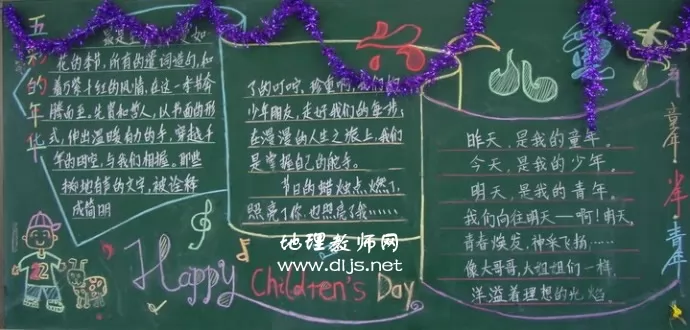 五彩的年华
花的季节,所有的遣词造句,和
着万紫千红的风情,在这一本书会
腾而至,先贤和哲人,以书面的形
式,伸出温暖有力的手,穿越千
年的时空,与我们相握。那些
掷地有声的文字,被诠释
成简明
了的叮咛,珍重啊,我们
少年朋友,走好我们的每一步;
在漫漫的人生之旅上,我们
是掌握自己的舵手。
节日的蜡烛点燃了,
照亮了你,也照亮了我……
童年
少年
青年
昨天,是我的童年。
今天,是我的少年。
明天,是我的青年。
我们向往明天——啊!明天,
青春焕发,神采飞扬……
像大哥哥,大姐姐们一样,
洋溢着理想的火焰。
地理教师网
www.dljs.net
Happy Children's Day